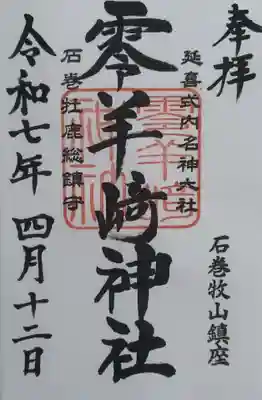 奉拝
延喜式内名神大社
石巻牧山鎮座
零羊崎神社
石巻牡鹿総鎮守
令和七年 四月十二日